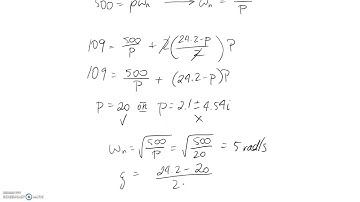 500 = pωn → ωn = √500/p
109 = 500/p + 2((24.2-p)/2)p
109 = 500/p + (24.2-p)p
p = 20 or p = 2.1 ± 4.54i
✓ x
ωn = √500/p = √500/20 = 5 rad/s
ζ = (24.2 - 20)/2.